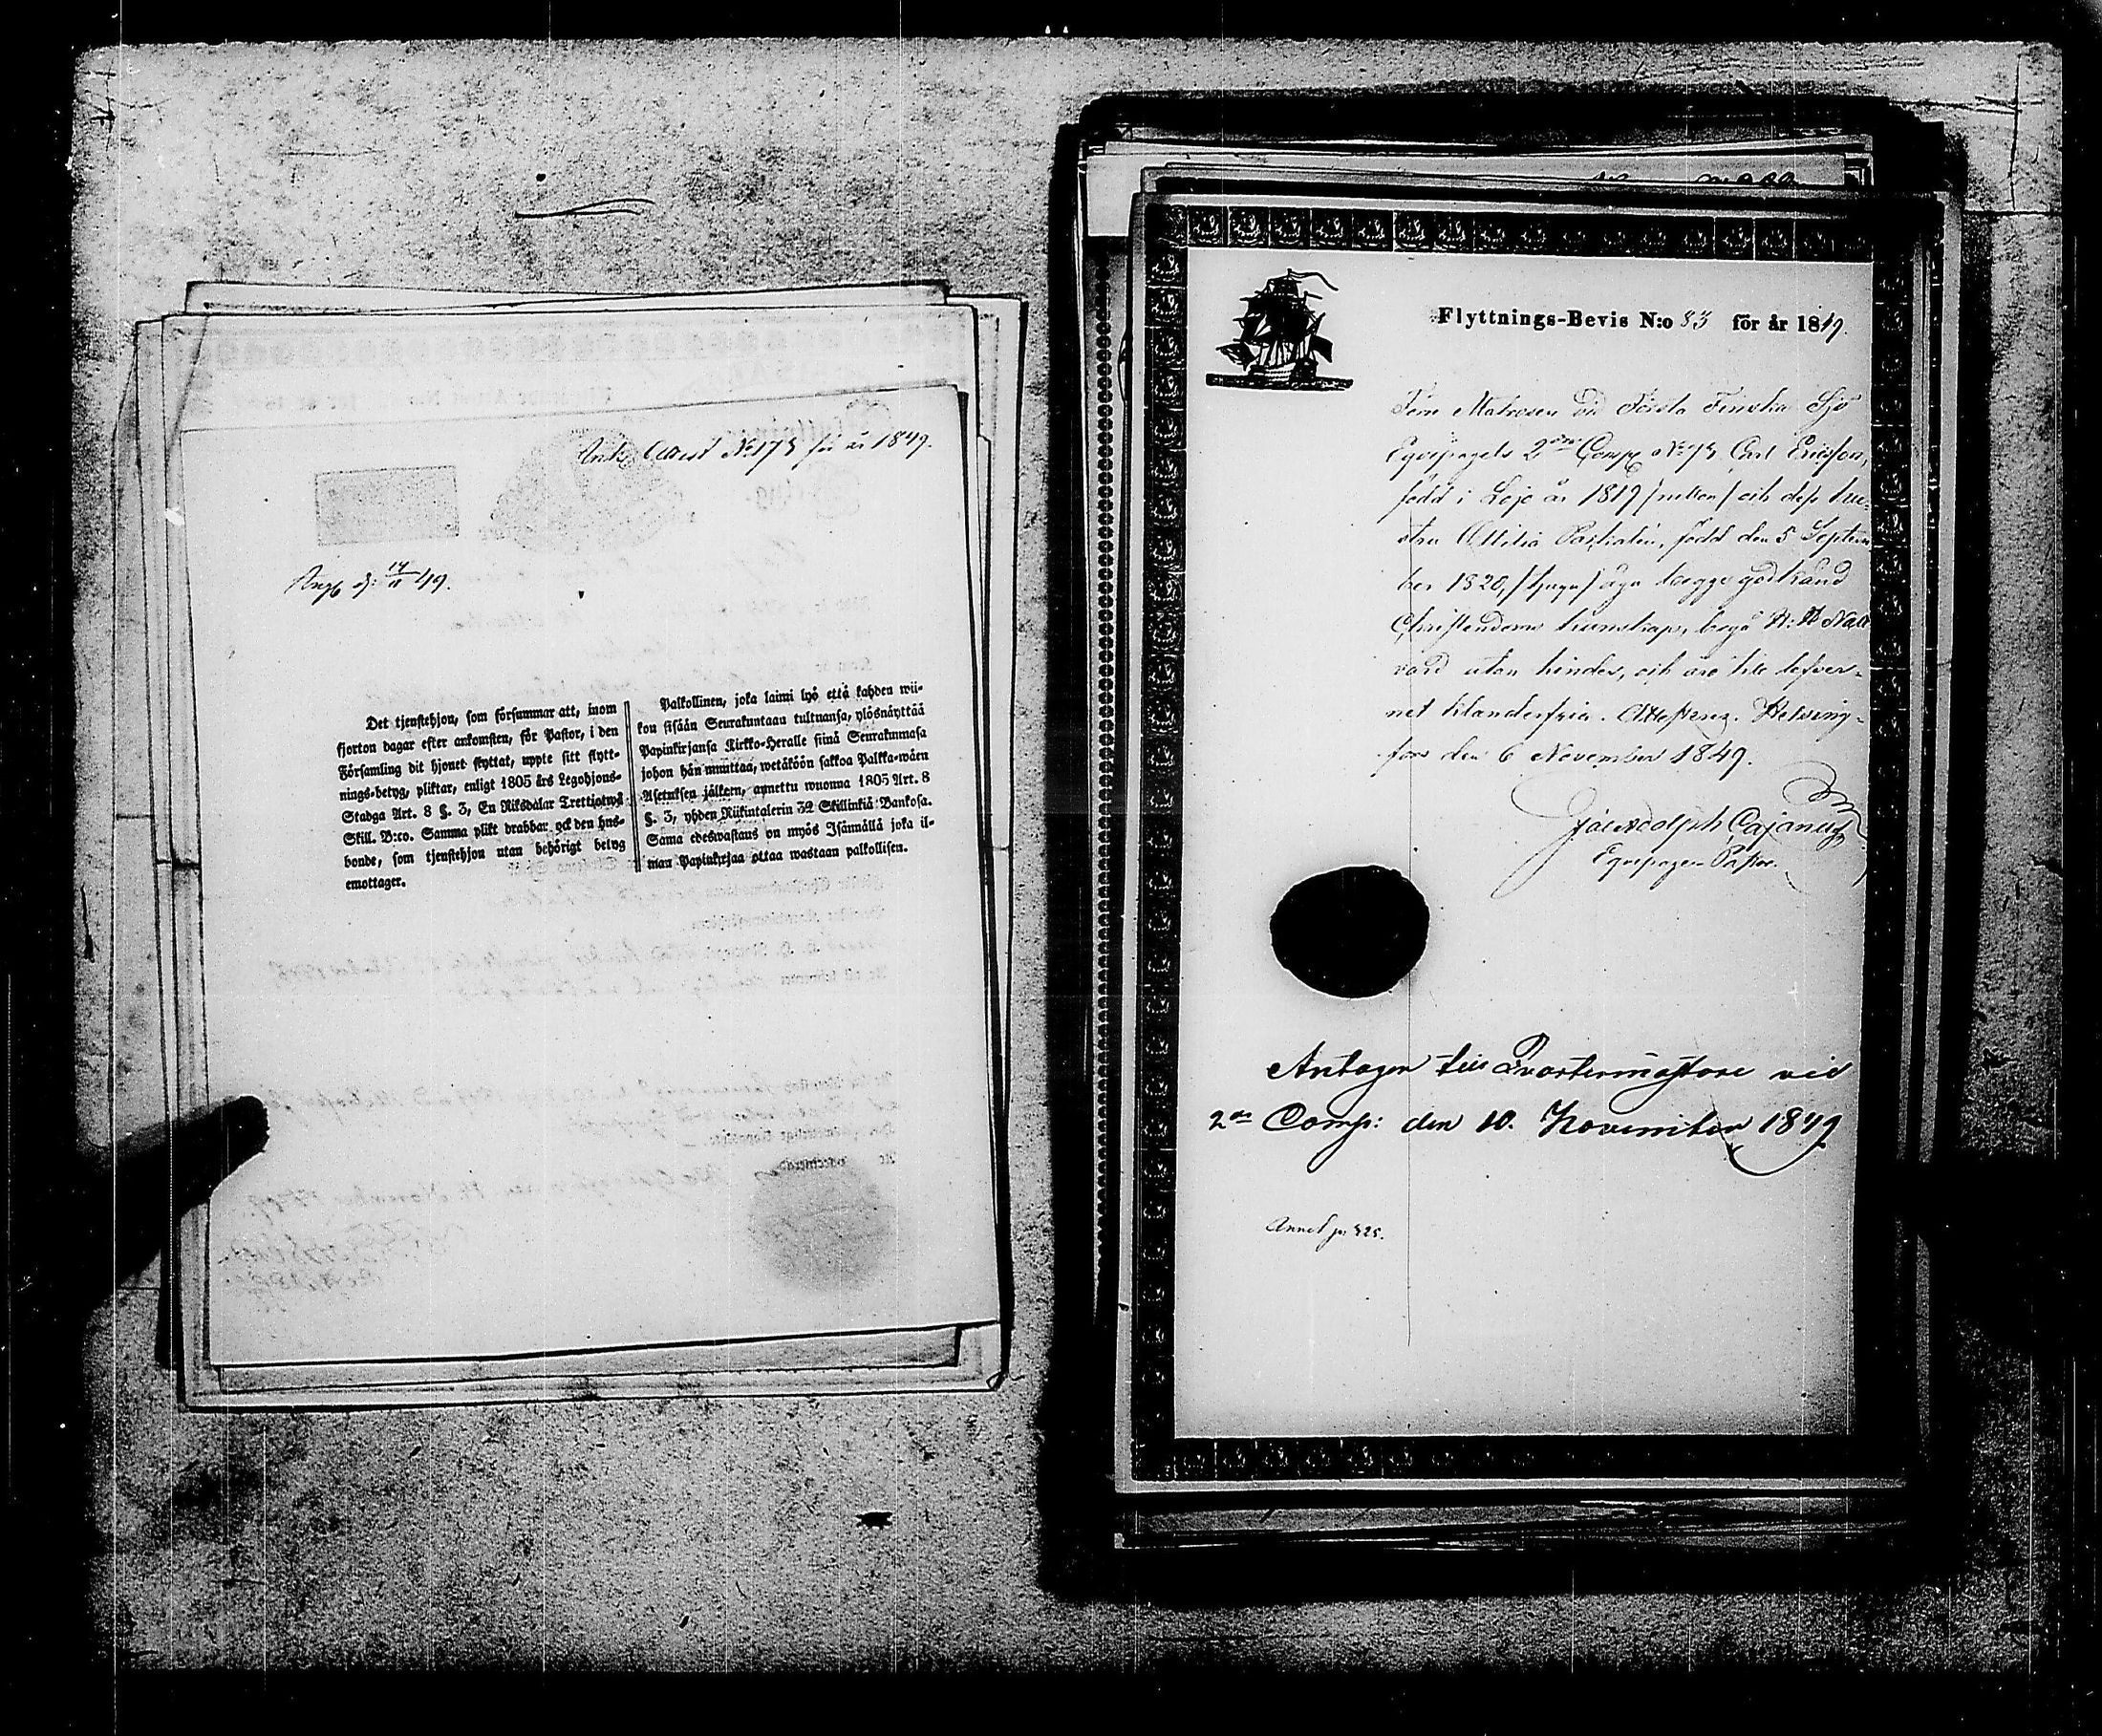 Attest No 173 för år 1849.
d: 14/11 49.
Det tjenstehjon, som försummar att, inom
fjorton dagar efter ankomsten, för Pastor, i den
Församling dit hjonet flyttat, uppte sitt flytt-
nings-betyg, pliktar, enligt 1805 års Legohjons-
Stadga Art. 8 §. 3, En Riksdalar Trettiotwå
Skill. B:co. Samma plikt drabbar ock den hus-
bonde, som tjenstehjon utan behörigt betyg
emottager.
Palkollinen, joka laimi lyö että kahden wii-
kon sisään Seurakuntaan tultuansa, ylösnäyttää
Papinkirjansa Kirkko-Herralle siinä Seurakunnasa
johon hän muuttaa, wetäköön sakkoa Palkka-wäen
Asetuksen jälkeen, annettu wuonna 1805 Art. 8
§. 3, yhden Riikintalerin 32 Skillinkiä Bankosa.
Sama edeswastaus on myös Isännällä joka il-
man Papinkirjaa ottaa wastaan palkollisen.
Flyttnings-Bevis N:o 83 för år 1849.
Förre Matrosen vid Första Finska Sjö
Equipagets 2dra Comp. No 73 Carl Ericsson,
född i Lojo år 1819 /nitton/ och dess hu-
stru Ottilia, född den 5 Septem
ber 1820, /tjugu/ äga begge godkänd
Christendoms kunskap, begå H: H: Natt
vard utan hinder, och äro till lefver-
net klanderfria. Attesterar. Helsing-
fors den 6 November 1849.
Joh Adolph Cajanus
Equipages Pastor.
Antagen till Qvartermästare vid
2dra Comp: den 10. November 1849
Annot p. 325.